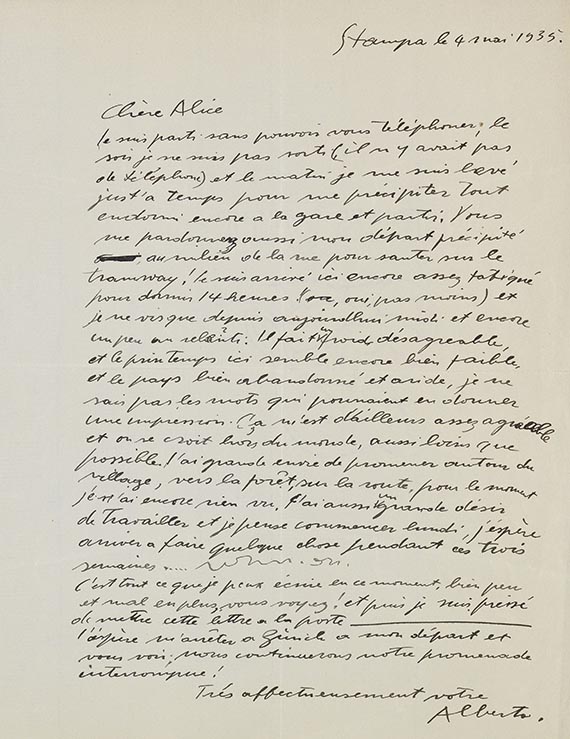 Stampa le 4 mai 1935.
Chère Alice
Je suis parti sans pouvoir vous téléphoner, le
soir je ne suis pas sorti (il n'y avait pas
de téléphone) et le matin je me suis levé
just'a temps pour me précipiter tout
endormi encore a la gare et partir. Vous
me pardonnerez aussi mon départ précipité
au milieu de la rue pour sauter sur le
tramway! Je suis arrivé ici encore assez fatigué
pour dormir 14 heures! (oui, oui, pas moins) et
je ne vis que depuis aujourdhui midi et encore
un peu au ralenti. Il fait un froid désagreable,
et le printemps ici semble encore bien faible,
et le pays bien abandonné et aride, je ne
sais pas les mots qui pourraient en donner
une impression. Ça m'est d'ailleurs assez agréable
et on se croit hors du monde, aussi loin que
possible. J'ai grande envie de promener autour du
village, vers la forêt, sur la route, pour le moment
je n'ai encore rien vu. J'ai aussi un grande désir
de travailler et je pense commencer lundi, j'éspère
arriver a faire quelque chose pendant ces trois
semaines .....
C'est tout ce que je peux écrire en ce moment, bien peu
et mal en plus, vous voyez! et puis je suis pressé
de mettre cette lettre a la poste
J'éspère m'arrêter a Zürich a mon départ et
vous voir, nous continuerons notre promenade
interrompue!
Trés affectueusement votre
Alberto.